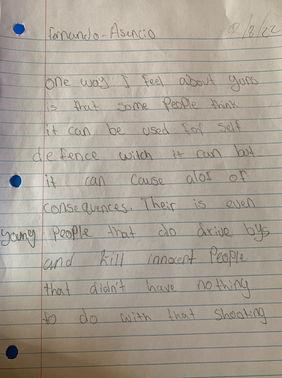 Fernando-Asencio
/8/22
one way I feel about guns
is that some People think
it can be used for self
defence witch it can but
it can cause alot of
consequences. Their is even
young People that do drive bys
and kill innocent People
that didn't have nothing
to do with that shooting